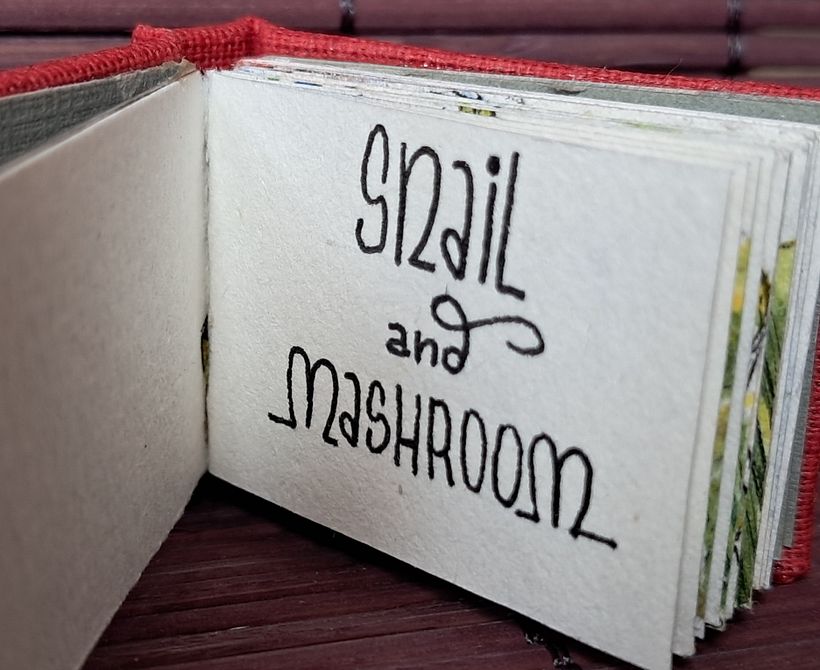 Snail
and
MaSHROOM